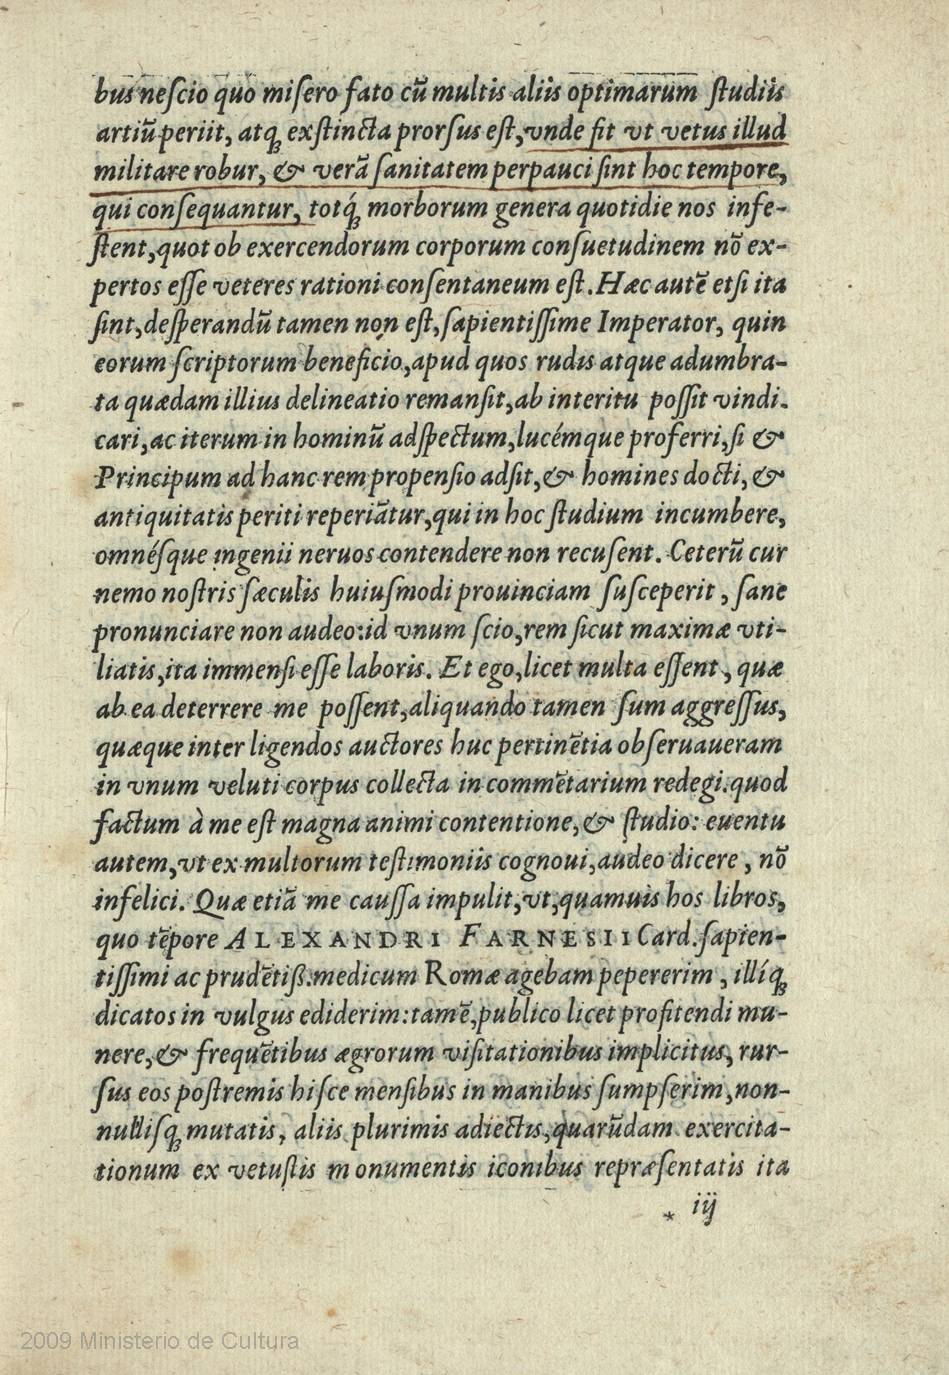 bus nescio quo misero fato cū multis aliis optimarum studiis
artiū periit, atq; exstincta prorsus est, vnde fit vt vetus illud
militare robur, & verā sanitatem perpauci sint hoc tempore,
qui consequantur, totq́; morborum genera quotidie nos infe-
stent, quot ob exercendorum corporum consuetudinem nō ex-
pertos esse veteres rationi consentaneum est. Hæc autē etsi ita
sint, desperandū tamen non est, sapientissime Imperator, quin
eorum scriptorum beneficio, apud quos rudis atque adumbra-
ta quædam illius delineatio remansit, ab interitu possit vindi-
cari, ac iterum in hominū adspectum, lucémque proferri, si &
Principum ad hanc rem propensio adsit, & homines docti, &
antiquitatis periti reperiātur, qui in hoc studium incumbere,
omnésque ingenii neruos contendere non recusent. Ceterū cur
nemo nostris sæculis huiusmodi prouinciam susceperit, sane
pronunciare non audeo: id vnum scio, rem sicut maximæ vti-
liatis, ita immensi esse laboris. Et ego, licet multa essent, quæ
ab ea deterrere me possent, aliquando tamen sum aggressus,
quæque inter ligendos auctores huc pertinētia obseruaueram
in vnum veluti corpus collecta in commētarium redegi. quod
factum à me est magna animi contentione, & studio: euentu
autem, vt ex multorum testimoniis cognoui, audeo dicere, nō
infelici. Quæ etiā me caussa impulit, vt, quamuis hos libros,
quo tēpore ALEXANDRI FARNESII Card. sapien-
tissimi ac prudētiß. medicum Romæ agebam pepererim, illíq;
dicatos in vulgus ediderim: tamē, publico licet profitendi mu-
nere, & frequētibus ægrorum visitationibus implicitus, rur-
sus eos postremis hisce mensibus in manibus sumpserim, non-
nullisq; mutatis, aliis plurimis adiectis, quarūdam exercita-
tionum ex vetustis monumentis iconibus repræsentatis ita
* iij
2009 Ministerio de Cultura